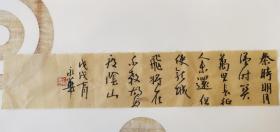 秦時明月
漢时關
萬里長征
人未還但
使龍城
飛將在
不教胡馬
度陰山
戊戌